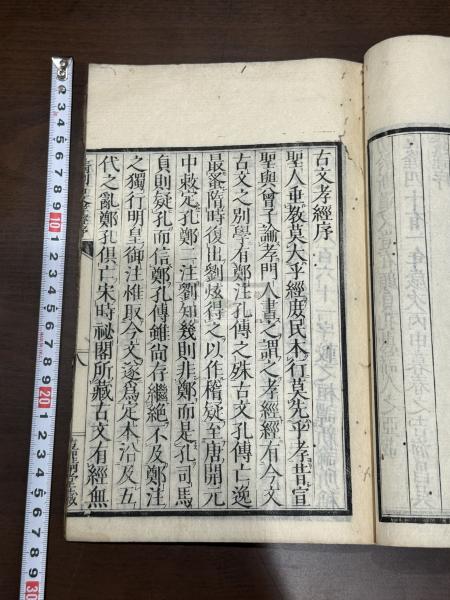 古文孝經序
聖人垂教莫大乎經庋民木行莫先乎孝昔宣
聖與曾子論孝門人書之謂之孝經經有今文
古文之別學有鄭注孔傳之殊古文孔傳亡逸
最蚤隋時復出劉炫得之以作稽疑至唐開元
中敕定孔鄭二注劉知幾則非鄭而是孔司馬
貞則疑孔而信鄭孔傳雖尚存繼絕不及鄭注
之獨行明皇御注惟取今文遂爲定木沿及五
代之亂鄭孔俱亡宋時祕閣所藏古文有經無